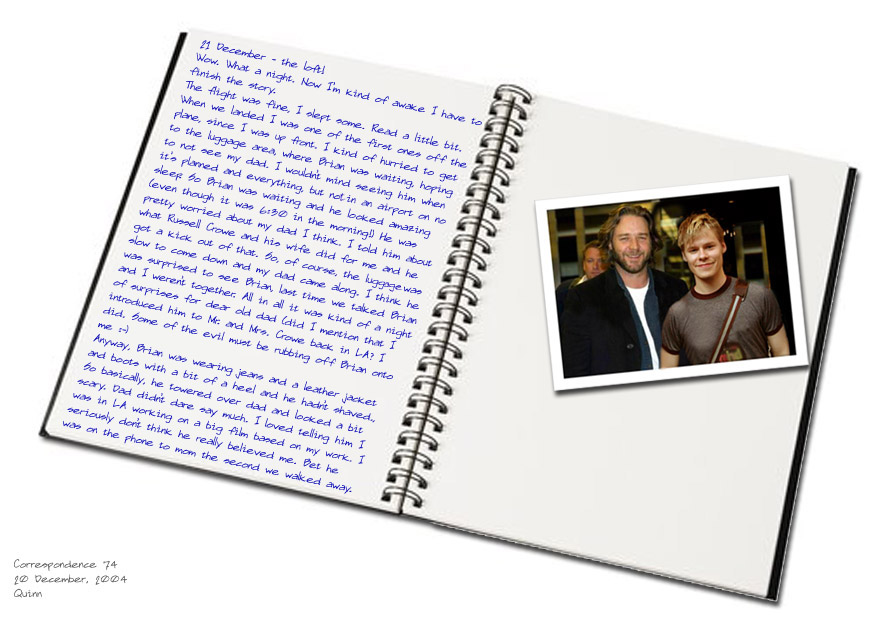 21 December - the loft!
Wow. What a night. Now I'm kind of awake I have to
finish the story.
The flight was fine, I slept some. Read a little bit.
When we landed I was one of the first ones off the
plane, since I was up front. I kind of hurried to get
to the luggage area, where Brian was waiting, hoping
to not see my dad. I wouldn't mind seeing him when
it's planned and everything, but not in an airport on no
sleep. So Brian was waiting and he looked amazing
(even though it was 6:30 in the morning!) He was
pretty worried about my dad I think. I told him about
what Russell Crowe and his wife did for me and he
got a kick out of that. So, of course, the luggage was
slow to come down and my dad came along. I think he
was surprised to see Brian, last time we talked Brian
and I weren't together. All in all it was kind of a night
of surprises for dear old dad (did I mention that I
introduced him to Mr. and Mrs. Crowe back in LA? I
did. Some of the evil must be rubbing off Brian onto
me :-)
Anyway, Brian was wearing jeans and a leather jacket
and boots with a bit of a heel and he hadn't shaved..
So basically, he towered over dad and looked a bit
scary. Dad didn't dare say much. I loved telling him I
was in LA working on a big film based on my work. I
seriously don't think he really believed me. Bet he
was on the phone to mom the second we walked away.
Correspondence 74
20 December, 2004
Quinn